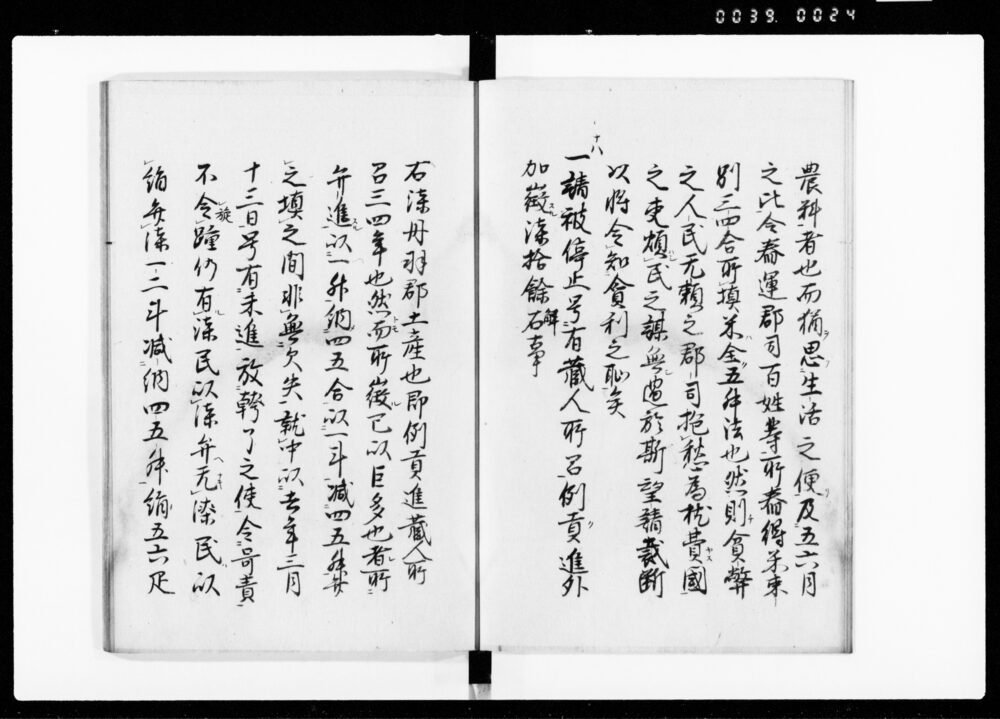 0039 0024
農料者也而猶思生活之便及五六月
之比令舂運郡司百姓等所舂得米束
別三四合所填米全五升法也然則貧弊
之人民无頼之郡司抱愁為枕費國
之吏煩民之謀無過於斯望請裁断
以将令知貪利之恥矣
十八
一請被停止号有蔵人所召例貢進外
加徴漆拾餘石解事
右漆丹羽郡土産也即例貢進蔵人所
召三四年也然而所徴已以巨多也者所
弁進以一升納四五合以一斗減四五升并
之填之間非無欠失就中以去年三月
十三日号有未進放符了之使令呵責
不令旋踵仍有漆民以漆弁无漆民以
絹弁漆一二斗減納四五升絹五六疋